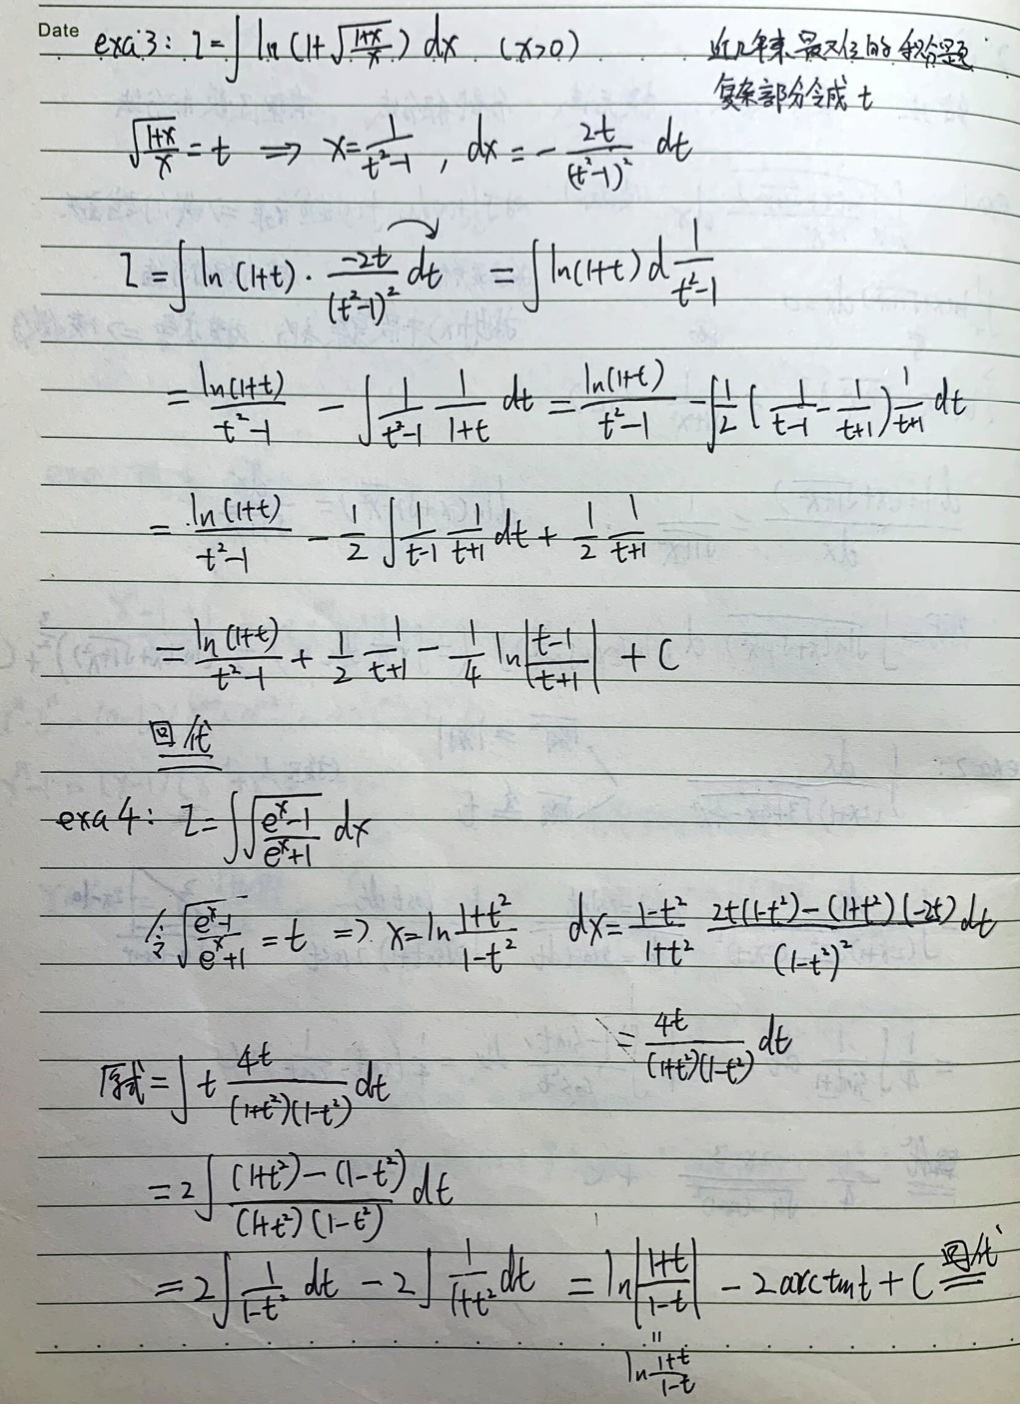 Date
exa3: I=∫ ln(1+√((1+x)/x)) dx (x>0) 近几年来最难的积分题
复杂部分令成 t
√((1+x)/x) = t ⇒ x = 1/(t²-1), dx = - 2t/(t²-1)² dt
I = ∫ ln(1+t) · -2t/(t²-1)² dt = ∫ ln(1+t) d 1/(t²-1)
= ln(1+t)/(t²-1) - ∫ 1/(t²-1) 1/(1+t) dt = ln(1+t)/(t²-1) - ∫ 1/2 (1/(t-1) - 1/(t+1)) 1/(t+1) dt
= ln(1+t)/(t²-1) - 1/2 ∫ 1/(t-1) 1/(t+1) dt + 1/2 1/(t+1)
= ln(1+t)/(t²-1) + 1/2 1/(t+1) - 1/4 ln|(t-1)/(t+1)| + C
回代
exa4: I=∫ √((e^x-1)/(e^x+1)) dx
令 √((e^x-1)/(e^x+1)) = t ⇒ x = ln (1+t²)/(1-t²) dx = (1-t²)/(1+t²) (2t(1-t²)-(1+t²)(-2t))/(1-t²)² dt
= 4t/((1+t²)(1-t²)) dt
原式 = ∫ t 4t/((1+t²)(1-t²)) dt
= 2∫ ((1+t²)-(1-t²))/((1+t²)(1-t²)) dt
= 2∫ 1/(1-t²) dt - 2∫ 1/(1+t²) dt = ln|(1+t)/(1-t)| - 2arctant + C 回代
=
ln (1+t)/(1-t)